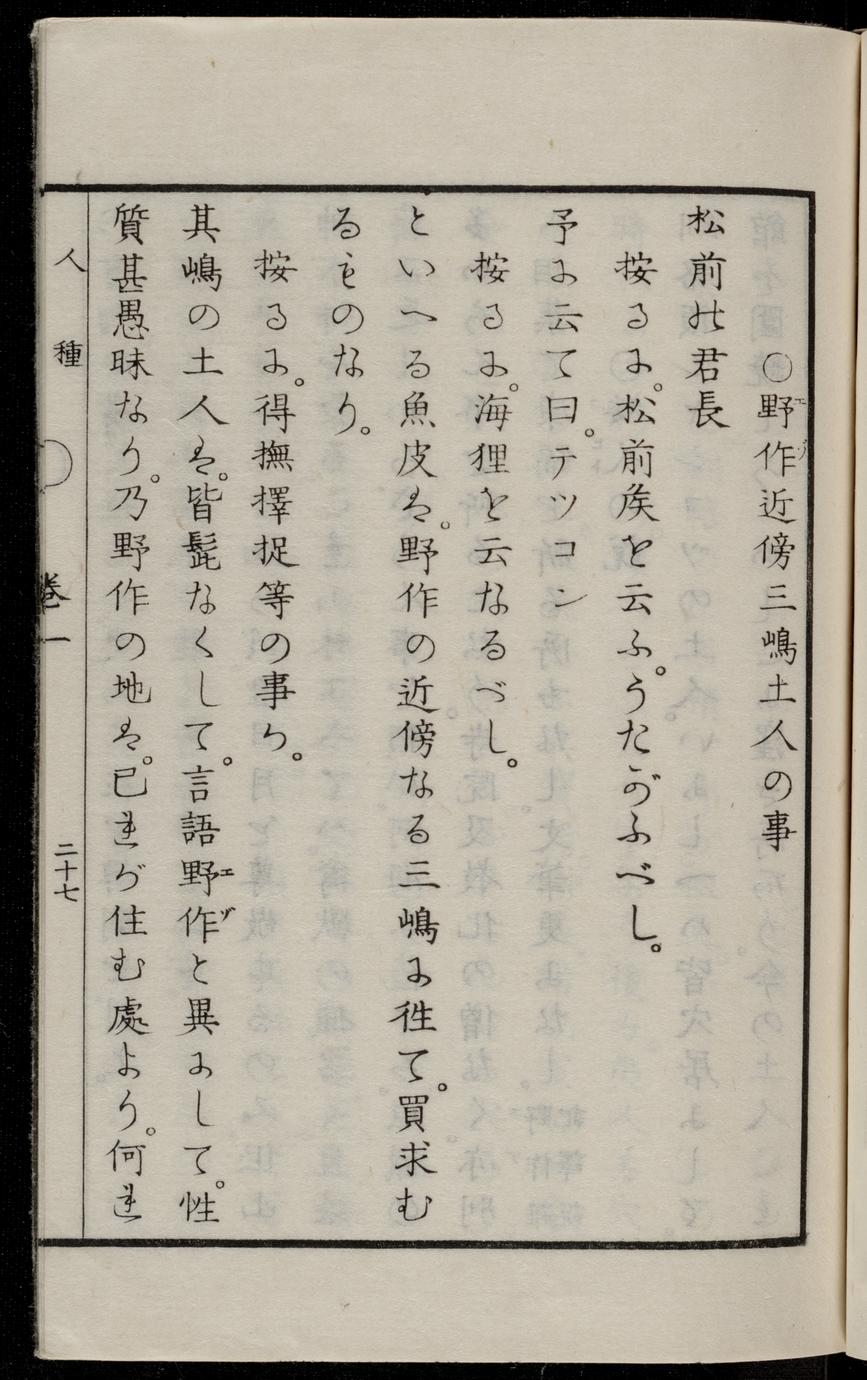 〇野作近傍三嶋土人の事
エゾ
松前の君長
按るに。松前矦を云ふ。うたがふべし。
予に云て曰。テツコン
按るに。海狸を云なるべし。
といへる魚皮は。野作の近傍なる三嶋に徃て。買求む
るものなり。
按るに。得撫擇捉等の事か。
其嶋の土人は。皆髭なくして。言語野作と異にして。性
エゾ
質甚愚昧なり。乃野作の地は。已れが住む處より。何れ
人種
巻一
二十七